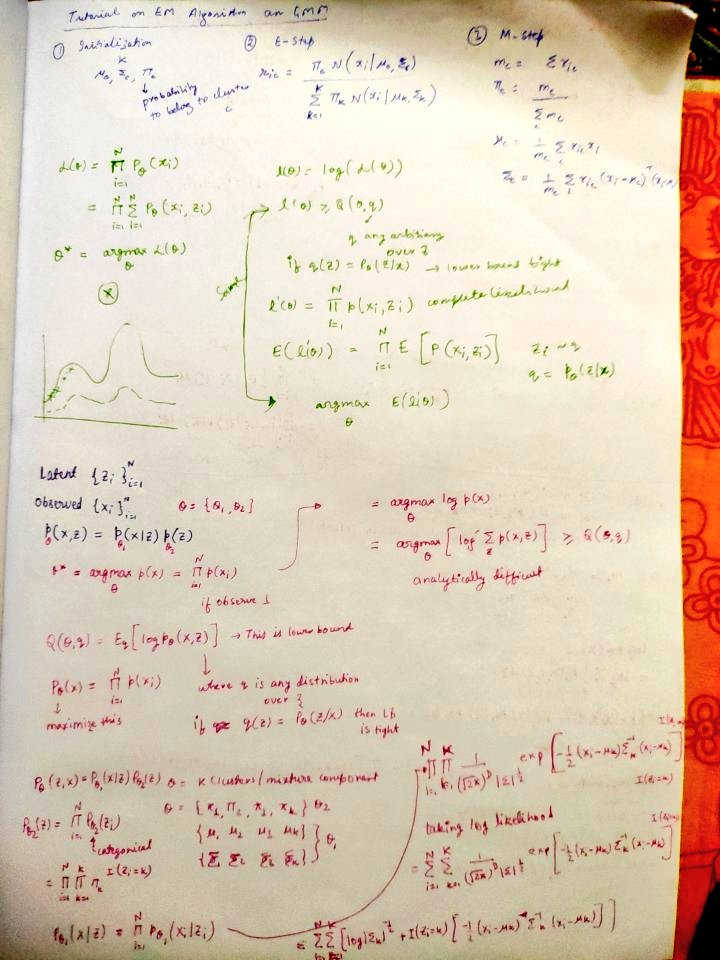 Tutorial on EM Algorithm on GMM
① Initialization
K
μc, Σc, Πc
↓
probability
to belong to cluster
c
② E-Step
ric = Πc N(xi | μc, Σc)
Σ k=1 K Πk N(xi | μk, Σk)
③ M-step
mc = Σ ric
Πc = mc
Σc mc
μc = 1/mc Σi ric xi
Σc = 1/mc Σi ric (xi-μc)ᵀ(xi-μ
L(θ) = Π i=1 N Pθ(xi)
= Π i=1 N Σ i=1 Pθ(xi, zi)
θ* = argmax θ L(θ)
ⓧ
l(θ) = log(L(θ))
l(θ) ≥ Q(θ,q)
q any arbitiary
over z
if q(z) = Pθ(z/x) → lower bound tight
Same
l'(θ) = Π i=1 N p(xi, zi) complete likelihood
E(l'(θ)) = Π i=1 N E[P(xi, zi)] zi ~ q
q = Pθ(z|x)
argmax θ E(l'(θ))
Latent {zi} i=1 N
Observed {xi} i=1 N θ = {θ1, θ2}
pθ(x,z) = pθ1(x|z) pθ2(z)
θ* = argmax θ p(x) = Π i=1 N p(xi)
if observe
= argmax θ log p(x)
= argmax θ [log Σz p(x,z)] ≥ Q(θ,q)
analytically difficult
Q(θ,q) = Eq[log pθ(x,z)] → This is lower bound
Pθ(x) = Π i=1 N p(xi)
↓
maximize this
where q is any distribution
over z
if q(z) = Pθ(z/x) then Lb
is tight
Pθ(z,x) = Pθ1(x|z) Pθ2(z) θ = K clusters/mixture component
Pθ2(z) = Π i=1 N Pθ2(zi)
categorical
= Π i=1 N Π k=1 K πk I(zi=k)
θ = {π1, π2, π3, πk} θ2
{μ1 μ2 μ3 μk}
{Σ1 Σ2 Σ3 Σk} } θ1
Pθ1(x|z) = Π i=1 N pθ1(xi|zi)
Π i=1 N Π k=1 K 1/(√2π)ᴰ|Σ|^½ exp[-½(xi-μk)Σk⁻¹(xi-μk)]
I(zi=k)
taking log likelihood
= Σ i=1 N Σ k=1 K 1/(√2π)ᴰ|Σ|^½ exp[-½(xi-μk)Σk⁻¹(xi-μk)]
= Σ Σ [log|Σk|^-½ + I(zi=k)[-½(xi-μk)ᵀΣk⁻¹(xi-μk)]]